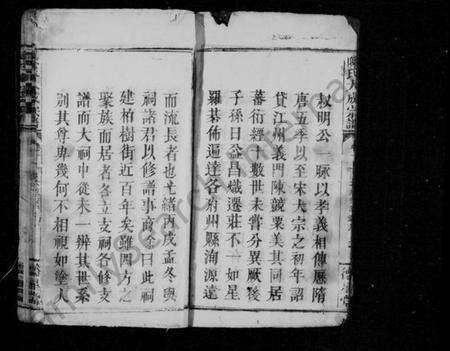 叔明公一脉以孝義相傳歷隋
唐五季以至宋太宗之初年詔
貸江州義門陳競粟美其同居
蕃衍經十數世未嘗分異厥後
子孫日益昌熾遷莊不一如星
羅棊佈遍達各府州縣洵源遠
而流長者也光緒丙戌孟冬與
祠諸君以修譜事商僉曰此祠
建柏樹街近百年矣雖四方之
聚族而居者各立支祠各修支
譜而大祠中從未一辨其世系
別其尊卑幾何不相視如塗人